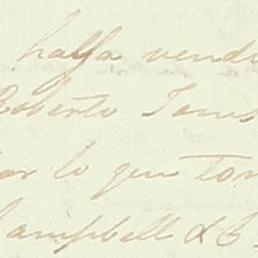 halfa vendi
Roberto James
por lo que tom
Campbell & C